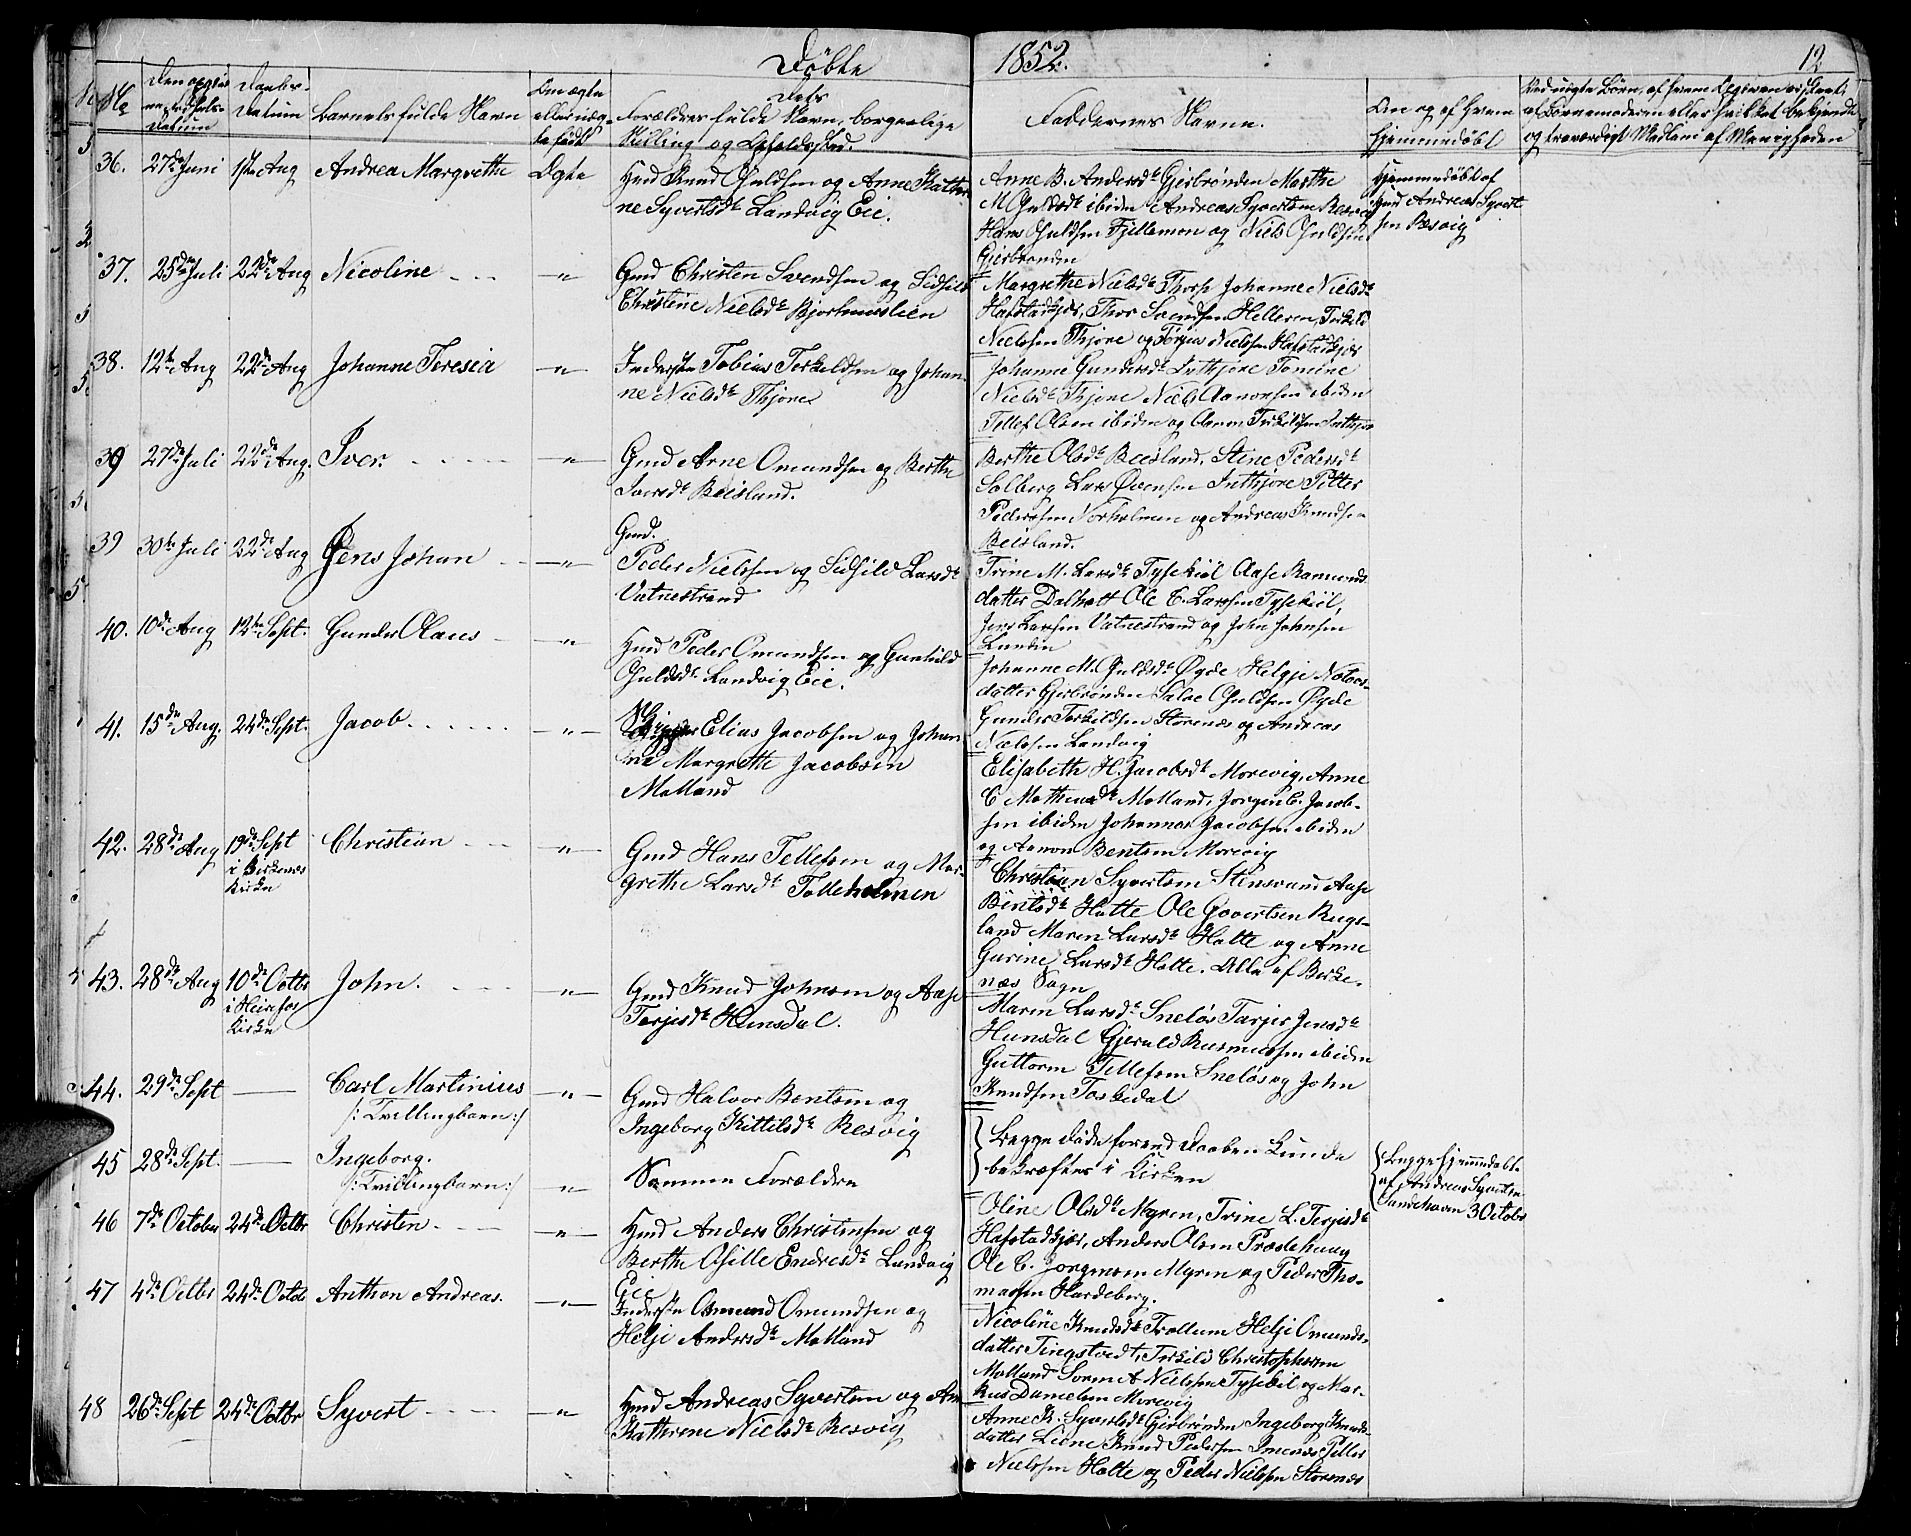 Döbte 1852. 12
No
Den opgivne Fødsels-Datum
Daabs-Datum
Barnets fulde Navn
Om ægte eller uægte født
Dets Forældres fulde Navn, borgerlige Stilling og Opholdssted.
Faddernes Navne.
Om og af hvem hjemmedøbt
36. 27de Juni 1ste Aug Andrea Margrethe Ægte
Hmd Knud Guldsen og Anne Kathri-
ne Syvertsdt Landvig Eie.
Anne B. Andersdt Gjerbrønden Marthe
M Guldsdt ibiden Andreas Syvertsen Resvig
Hans Guldsen Fjellemon og Niels Guldsen
Gjerbrønden
Hjemmedöbt af
Hmd Andreas Syvert
sen Resvig
37. 25de Juli 22de Aug Nicoline - - - -"-
Gmd Christen Svendsen og Sidsild
Christine Nielsdt Bjortmislien
Margrethe Nielsdt Thorp Johanne Nielsdt
Hafstadkjær, Thor Svendsen Helleren, Terkild
Nielssen Thjøre og Tørjus Nielssen Hafstadkjær
38. 12te Aug 22de Aug Johanne Teresia -"-
Inderste Tobias Terkeldsen og Johan-
ne Nielsdt Thjøre
Johanne Gundersdt Inthjøre Tomine
Nielsdt Thjøre Niels Aanonsen ibiden
Tellef Olsen ibiden og Aanon Terkildsen Inthjøre
39 27de Juli 22de Aug. Iver. - - - - -"-
Gmd Arne Omundsen og Berthe
Iversdt Beisland.
Berthe Olsdt Beisland, Stine Pedersdt
Solberg Lars Øvensen Inthjøre Petter
Pederssen Norholmen og Andreas Knudsen
Beisland.
39 30te Juli 22de Aug Jens Johan - - -"-
Gmd.
Peder Nielssen og Sidsild Larsdt
Vatnestrand
Trine M. Larsdt Tysekiil Aase Ramunds
datter Dalholt Ole C. Larssen Tysekiil,
Jens Larssen Vatnestrand og John Johnsen
Lunden
40. 10de Aug 12te Sept. Gunder Olaus - -"-
Hmd Peder Omundsen og Gunhild
Guldsdt Landvig Eie.
Johanne M. Guldsdt Øyde Helgje Notovs-
datter Gjerbrønden Salve Guldsen Øyde
Gunder Terkildsen Storenæs og Andreas
Nielssen Landvig
41. 15de Aug. 24de Sept. Jacob - - - - - -"-
Elias Jacobsen og Johan
ne Margrethe Jacobsen
Molland
Elisabeth H. Jacobsdt Morevig, Anne
C Mathiasdt Molland, Jørgen C. Jacob-
sen ibiden Johannes Jacobsen ibiden
og Aanon Bentsen Morevig
42. 28de Aug 19de Sept Christian - - - -"-
i Birkenæs
Kirke
Gmd Hans Tellefsen og Mar-
grethe Larsdt Tolleholmen
Christian Syvertsen Stensvand Aase
Bentsdt Hatte Ole Govertsen Rugs-
land Maren Larsdt Hatte og Anne
Gurine Larsdt Hatte. Alla af Birke-
næs Sogn
43. 28de Aug 10de Octbr John. - - - - -"-
i Heirefos
Kirke
Gmd Knud Johnsen og Aase
Terjesdt Hunsdal.
Maren Larsdt Sneløs Tarjer Jensdt
Hunsdal Gjeruld Rasmussen ibiden
Guttorm Tellefsen Sneløs og John
Knudsen Toskedal
44. 29de Sept — Carl Martinius -"-
/: Tvillingbarn :/
Gmd Halvor Bentsen og
Ingeborg Kittilsdt Resvig
Begge döde forend Daaben Kunde
bekræftes i Kirken
Begge hjemmedöbte
af Andreas Syvertsen
Sandehaven 3 October
45 28de Sept. — Ingeborg. -"-
/: Tvillingbarn :/
Samme Forældre
46 7de October 24de Octbr Christen - - - -"-
Hmd Anders Christensen og
Berthe Osille Endresdt Landvig
Eie
Oline Olsdt Myren, Trine L. Terjesdt
Hafstadkjær, Anders Olsen Præstehaug
Ole C. Jørgensen Myren og Peder Tho-
massen Hardeberg.
47 4de Octbr 24de Octbr Anthon Andreas. -"-
Inderste Osmund Omundsen og
Helje Andersdt Molland
Nicoline Knudsdt Trollum Helje Omunds-
datter Tingstvedt, Terkild Christophersen
Molland Søren A Nielssen Tysekil og Mar-
kus Danielsen Morevig
48 26de Sept 24de Octbr Syvert - - - - -"-
Hmd Andreas Syvertsen og Ane
Kathrene Nielsdt Resvig
Anne K. Syvertsdt Gjerbrønden Ingeborg Knuds
datter Liene Knud Pedersen Imenæs Petter
Nielssen Holte og Peder Nielssen Storenæs